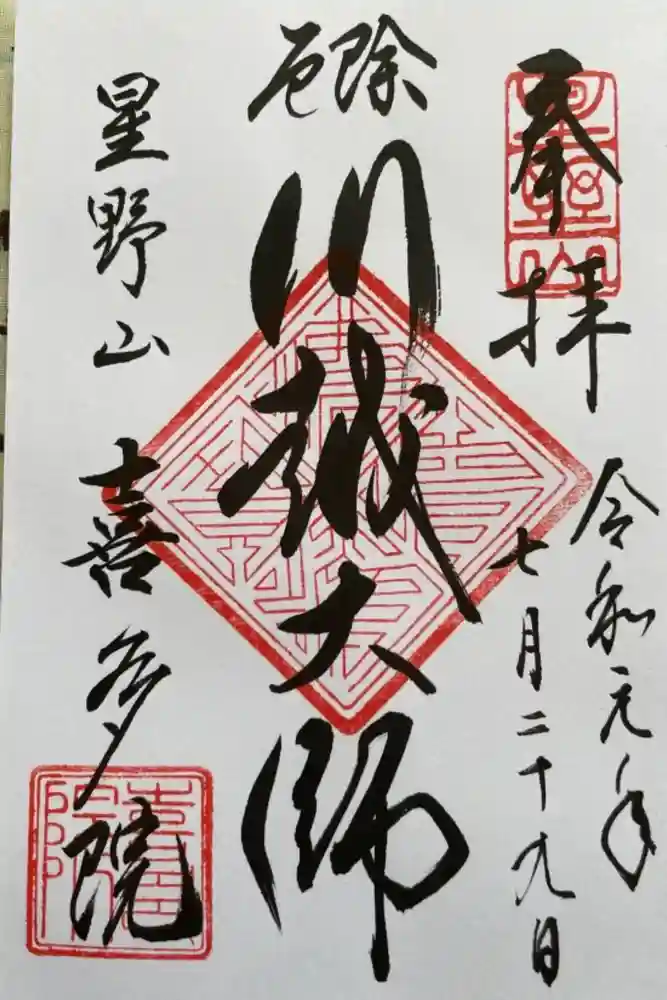 奉拝
令和元年
七月二十九日
厄除
川越大師
星野山
喜多院